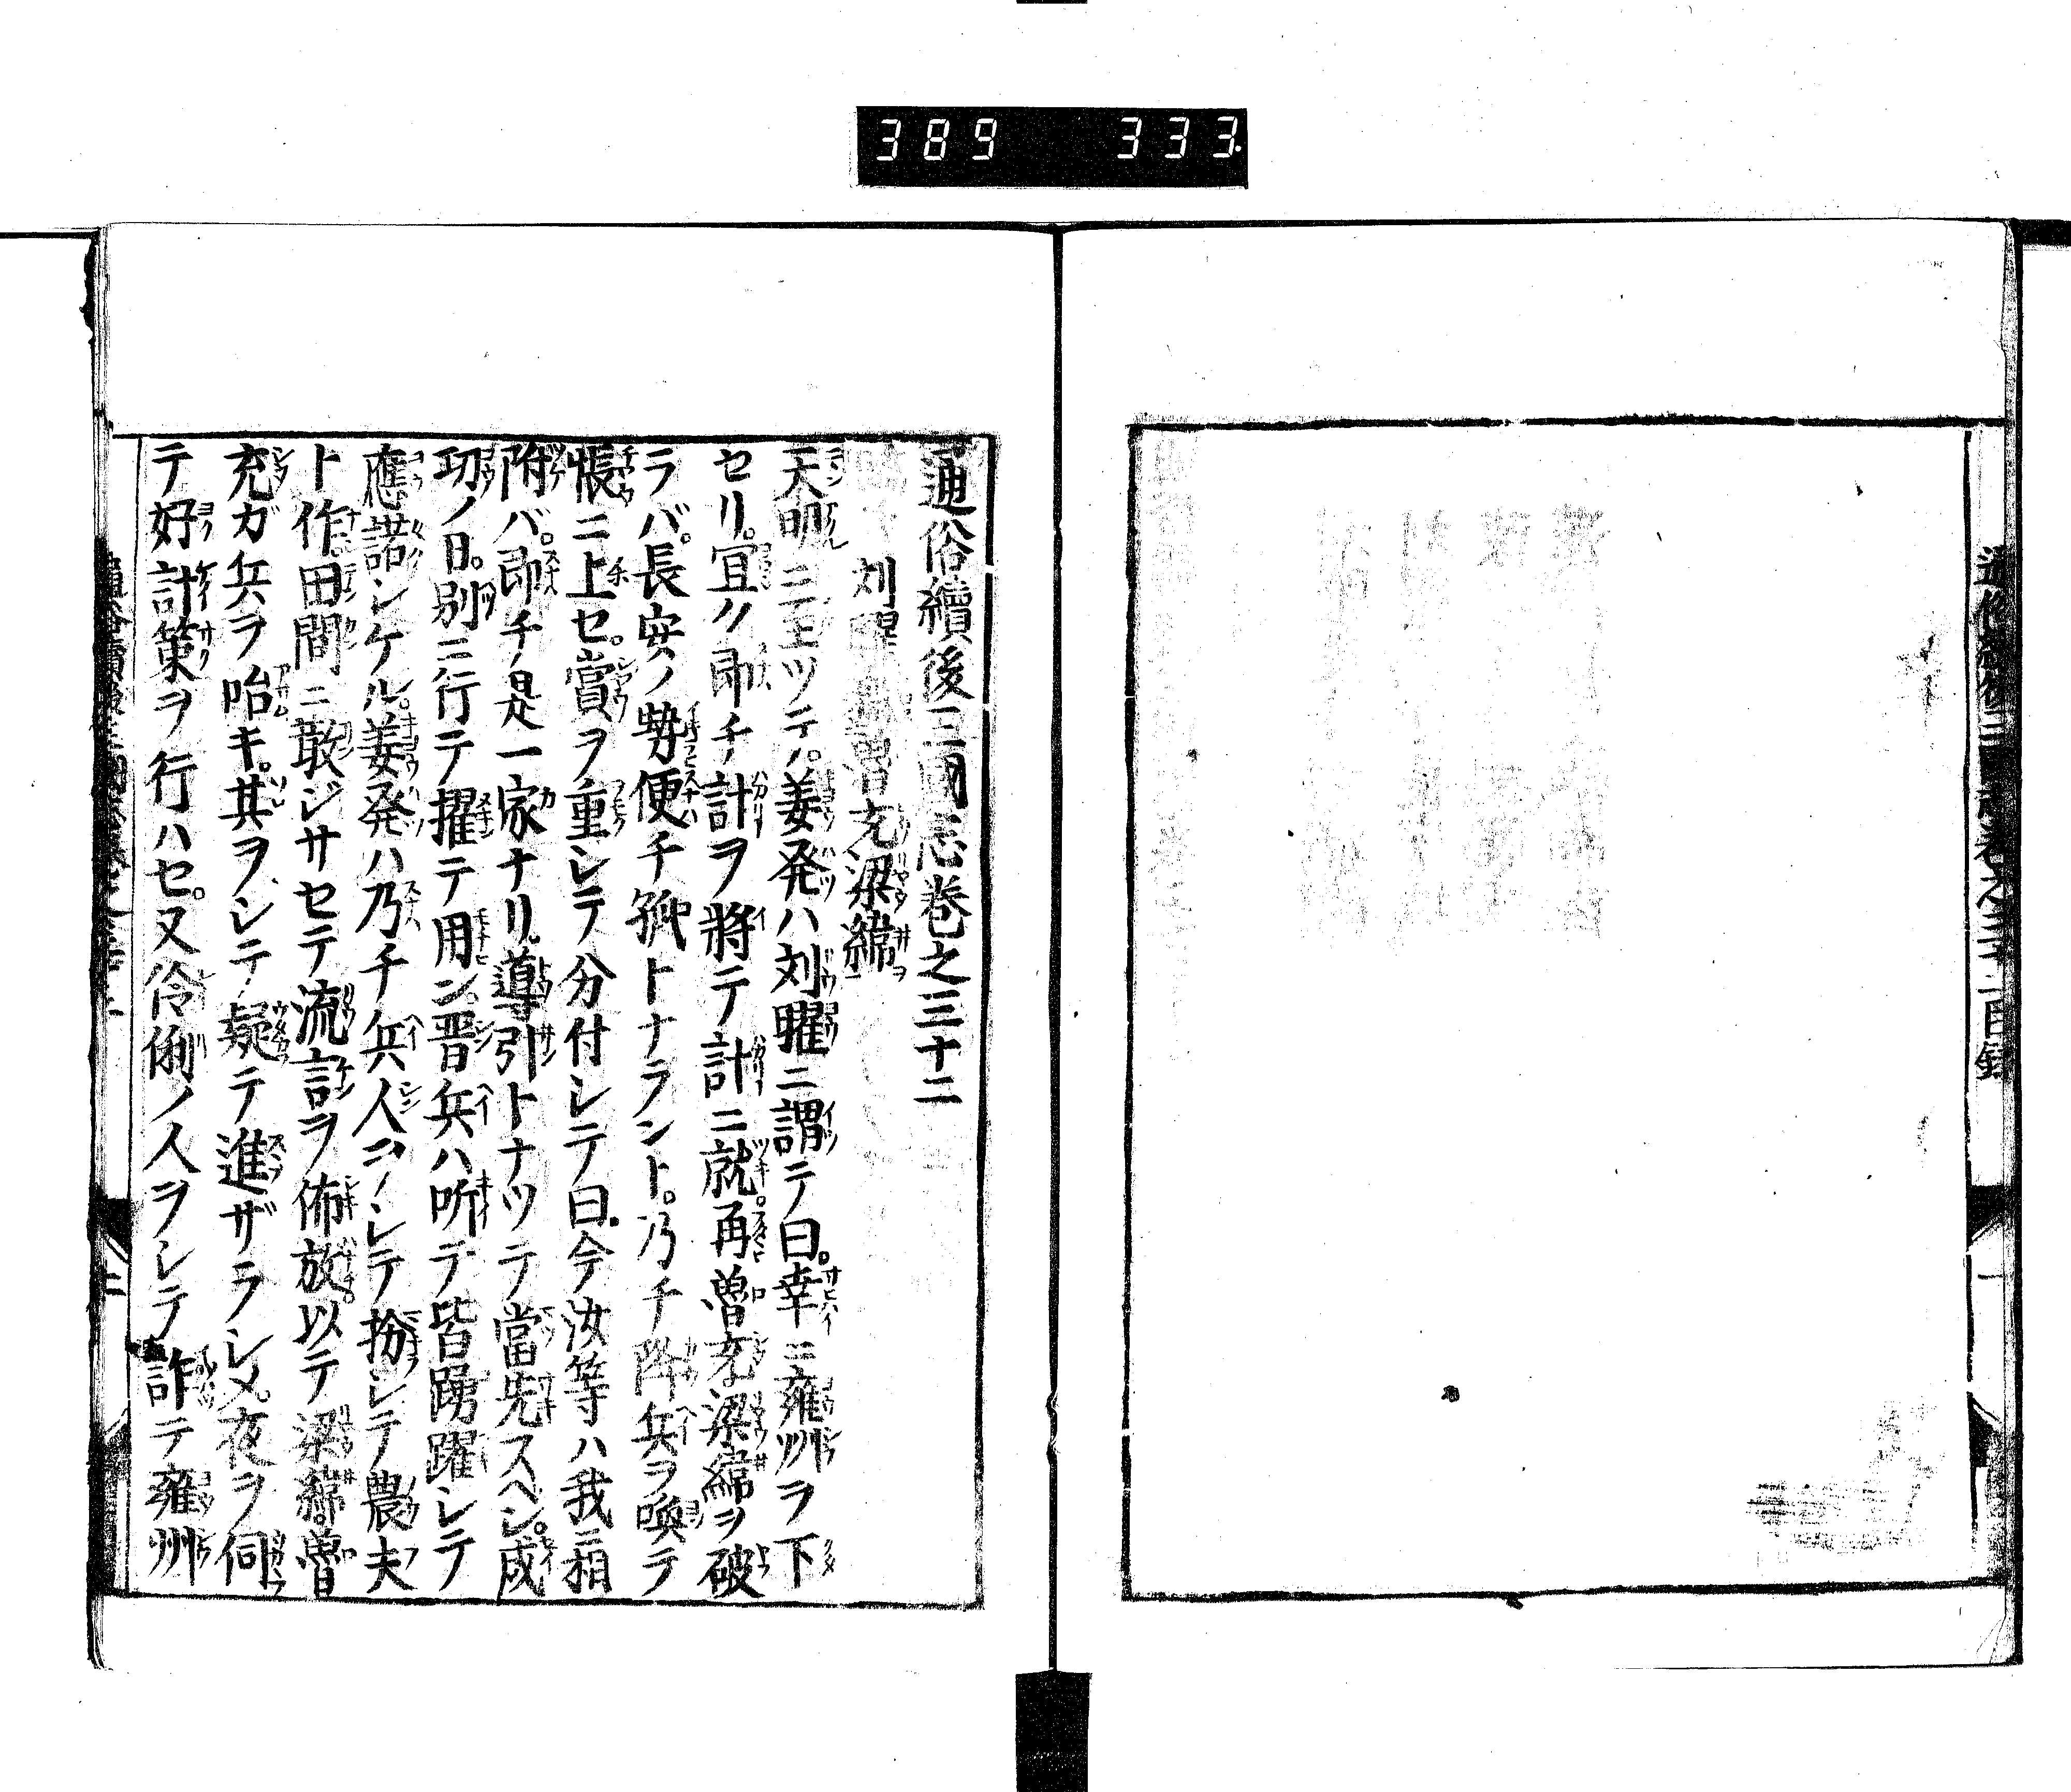 389 333
通俗續後三國志巻之三十二目録
一
通俗續後三國志巻之三十二
刘曜 曽充梁緯
天明ニ至ツテ。姜発ハ刘曜ニ謂テ曰。幸ニ雍州ヲ下
セリ。宜ク即チ計ヲ將テ計ニ就。再曽充梁緯ヲ破
ラバ。長安ノ勢便チ孤トナラント。乃チ降兵ヲ喚テ
帳ニ上セ。賞ヲ重シテ分付シテ曰。今汝等ハ我ニ相
附バ。即チ是一家ナリ。導引トナツテ當先スヘシ。成
功ノ日。別ニ行テ擢テ用ン。晋兵ハ听テ皆踴躍シテ
應諾シケル。姜発ハ乃チ兵人ヲシテ扮シテ農夫
ト作。田間ニ散ジサセテ流言ヲ佈放。以テ梁緯。曽
充ガ兵ヲ哈キ。其ヲシテ疑テ進ザラシメ。夜ヲ伺
テ好計策ヲ行ハセ。又伶俐ノ人ヲシテ詐テ雍州
二